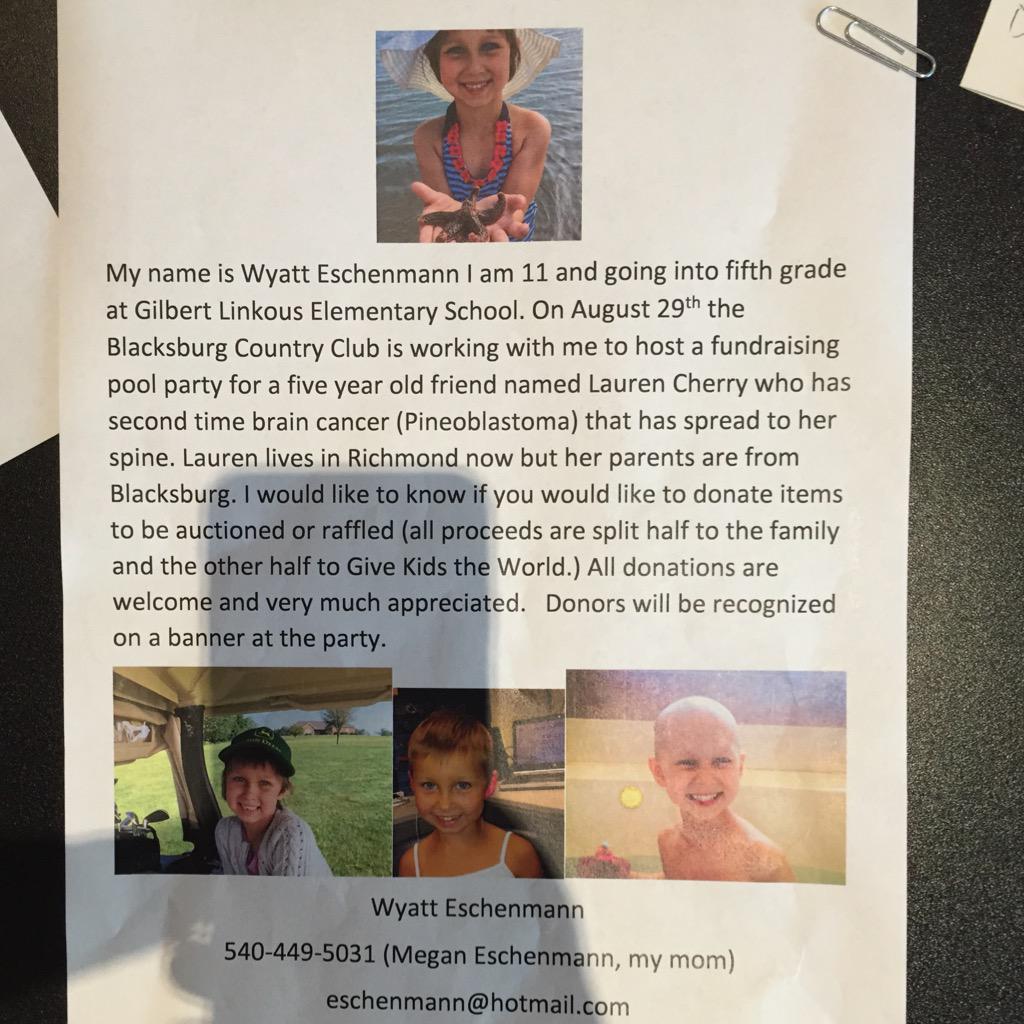 My name is Wyatt Eschenmann I am 11 and going into fifth grade
at Gilbert Linkous Elementary School. On August 29th the
Blacksburg Country Club is working with me to host a fundraising
pool party for a five year old friend named Lauren Cherry who has
second time brain cancer (Pineoblastoma) that has spread to her
spine. Lauren lives in Richmond now but her parents are from
Blacksburg. I would like to know if you would like to donate items
to be auctioned or raffled (all proceeds are split half to the family
and the other half to Give Kids the World.) All donations are
welcome and very much appreciated.   Donors will be recognized
on a banner at the party.
Wyatt Eschenmann
540-449-5031 (Megan Eschenmann, my mom)
eschenmann@hotmail.com